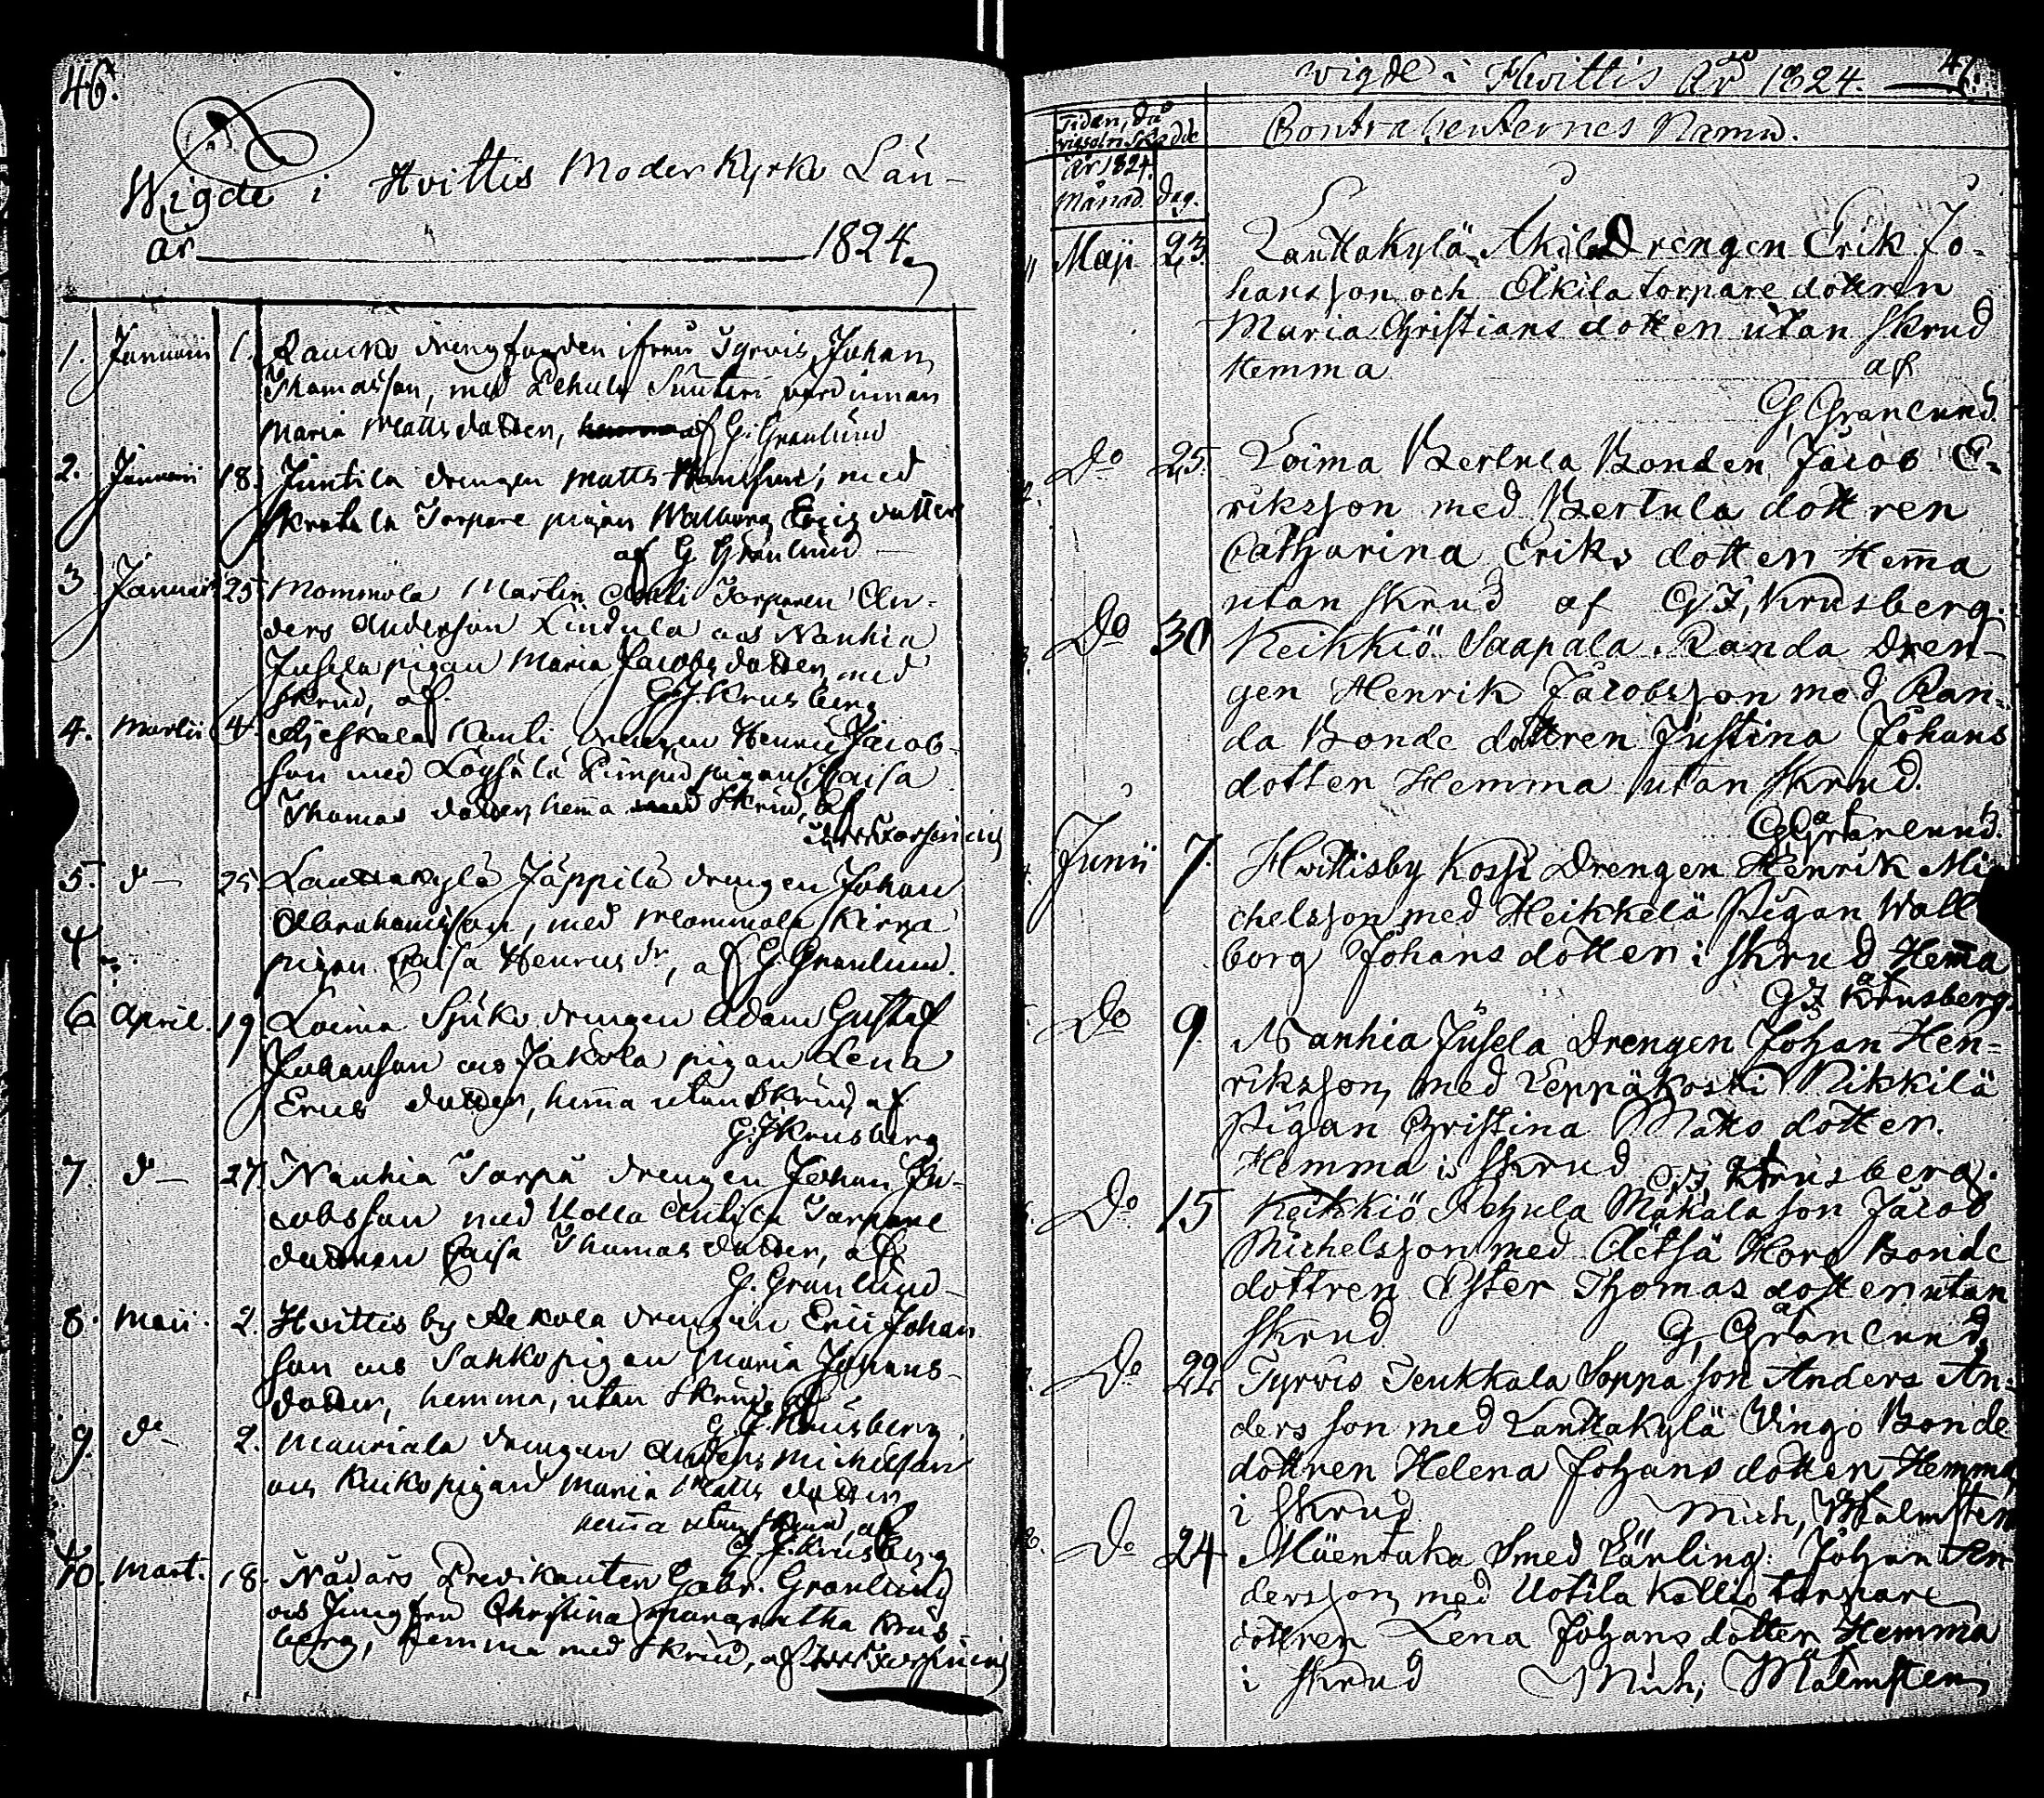 46.
Wigde i Hvittis Moder Kyrko Län-
år 1824.
1. Januarii 1. Raucko drengfogden ifrån Tyrvis Johan
Thomasson, med Rehula värdinnan
Maria Matts dotter, G. Granlund
2. Januarii 18. Juntila drengen Matts med
Torpare pigan Walborg Eriz dotter
af G Granlund
3 Januarii 25 Mommola Martin Torparen An-
ders Anderson Lindula och Nanhia
Jusela pigan Maria Jacobs dotter, med
skrud, af G. J. Krusberg
4. Martii 4. drengen Henric Jacob-
son med pigan Caisa
Thomas dotter, hema skrud, af
5. do 25 Lauttakylä Jäppilä drengen Johan
Abrahamsson, med Mommola Kirra
pigan Caisa Henrics dr, af G. Granlund.
6 April. 19 Loima Sjuko drengen Adam Gustaf
Johanson och Jakola pigan Lena
Erics dotter, hema utan skrud af
G. J Krusberg
7. do 27 Nanhia Torpa drengen Johan Ja-
cobsson med Uolla Antila Torpare
dottren Caisa Thomas dotter, af
G. Granlund
8. Maii. 2. Hvittis by drengen Eric Johan
son och Sahko pigan Maria Johans-
dotter, hemma, utan skrud af
G. J. Krusberg
9. do 2. Mauriala drengen Anders Michelson
och pigan Maria Matts dotter
hema utan skrud, af
G. J. Krusberg
10. Mart. 18. Nådårs Predikanten Gabr. Granlund
och Jungfru Christina Margaretha Krus-
berg, hemma med skrud, af
wigde i Hvittis År 1824. 47.
Tiden, då
wigseln skedde
År 1824.
Månad. Dag.
Contrahenternes Namn.
11 Maji 23 Lauttakylä Äkilä Drengen Erik Jo-
hansson och Äkilä torpare dottren
Maria Christians dotter utan skrud
Hemma af
G, Granlund.
Do 25. Loima Bertula Bonden Jacob E-
riksson med Bertula dottren
Catharina Eriks dotter Hema
utan skrud af G J, Krusberg.
Do 30 Keikkiö Saapala Randa Dren-
gen Henrik Jacobsson med Ran-
da Bonde dottren Justina Johans
dotter Hemma utan skrud.
af
G Granlund.
Junii 7. Hvittisby Kossi Drengen Henrik Mi-
chelsson med Heikkelä Pigan Wall
borg Johans dotter i skrud Hema
af
G J Krusberg.
Do 9. Nanhia Jusela Drengen Johan Hen-
riksson, med Leppäkoski Nikkilä
Pigan Christina Matts dotter.
Hemma i skrud af G J Krusberg.
Do 15 Keikkiö Rehula Makala son Jacob
Michelsson med Aetsä Horo Bonde
dottren Ester Thomas dotter utan
skrud af G, Granlund,
Do 22 Tyrvis Teukkala Soppa son Anders An-
ders son med Lauttakylä Vingo Bonde
dottren Helena Johans dotter Hemma
i skrud Mich, Malmsten
Do 24 Müentaka Smed Lärling: Johan An-
dersson, med Uotila Kallio torpare
dottren Lena Johans dotter Hemma
i skrud Mich, Malmsten